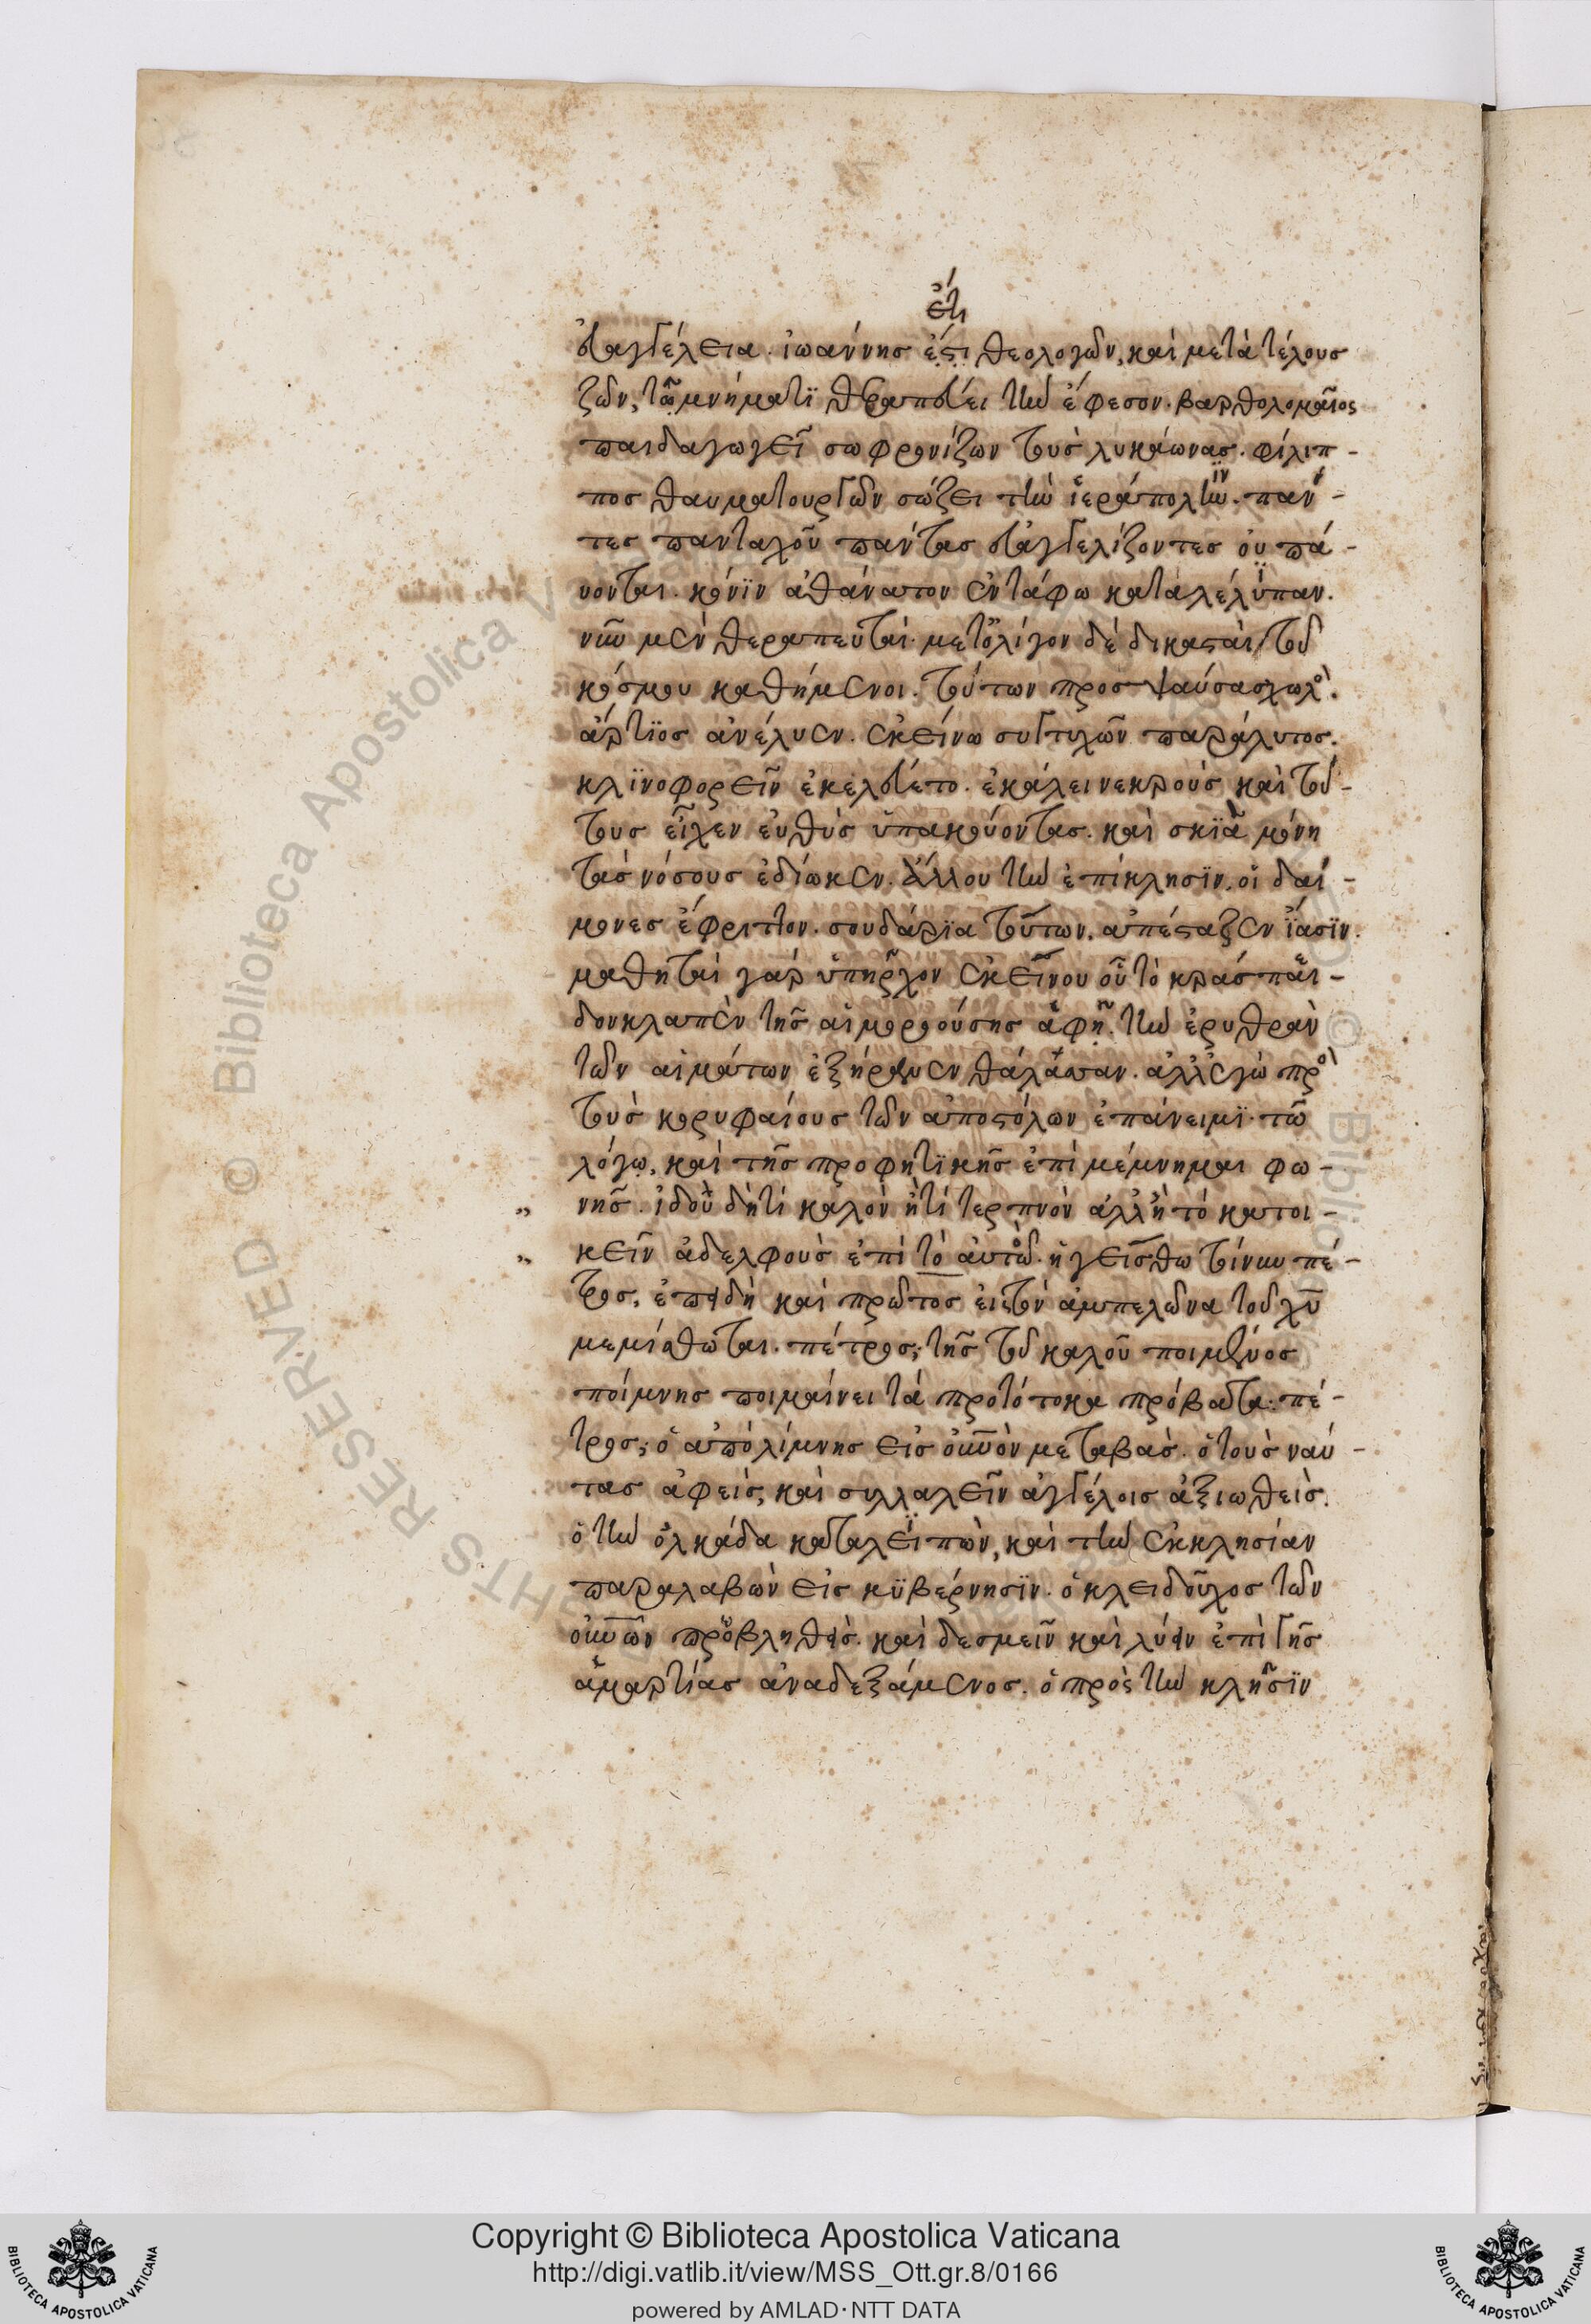 ἔτι
εὐαγγέλεια. ἰωάννης ἐστι θεολογῶν, καὶ μετὰ τέλους
ζῶν, τῶ μνήματϊ θεραπεύει τὴν ἔφεσον. βαρθολομαῖος
παιδαγωγεῖ σωφρονίζων τοὺς λυκάωνας. φίλιπ-
πος θαυματουργῶν σώζει τὴν ἱεράπολιν. πάν-
τες πανταχοῦ πάντας εὐαγγελίζοντες οὐ πά-
υονται. κόνϊν ἀθάνατον ἐν τάφω καταλέλύπαν.
νῦν μὲν θεραπευταὶ. μετ' ὀλίγον δὲ δικασταὶ τοῦ
κόσμου καθήμενοι. τούτων προσψαύσας χωλὸς.
ἄρτϊος ἀνέλυεν. ἐκείνω συντυχῶν παράλυτος.
κλϊνοφορεῖν ἐκελεύετο. ἐκάλει νεκροὺς καὶ τού-
τους εἶχεν εὐθὺς ὑπακούοντας. καὶ σκϊὰ μόνη
τὰς νόσους ἐδίωκεν. ἄλλου τὴν ἐπίκλησϊν, οἱ δαί-
μονες ἔφριττον. σουδάρϊα τούτων, ἀπέσταζεν ἴασϊν.
μαθηταὶ γὰρ ὑπῆρχον ἐκείνου οὗ τὸ κράσπαι-
δον κλαπὲν τῆς αἱμοροούσης ἁφῆ. τὴν ἐρυθρὰν
τῶν αἱμάτων ἐξήρανεν θάλασσαν. ἀλλ' ἐγὼ πρὸς
τοὺς κορυφαίους τῶν ἀποστόλων ἐπάνειμϊ τῶ
λόγω, καὶ τῆς προφητϊκῆς ἐπιμέμνημαι φω-
„ νῆς. ἰδοὺ δὴ τί καλὸν ἢ τί τερπνὸν ἀλλ' ἢ τὸ κατοι-
„ κεῖν ἀδελφοὺς ἐπὶ τὸ αὐτό. ἡγείσθω τοίνυν πέ-
τρος, ἐπειδὴ καὶ πρῶτος εἰς τὸν ἀμπελῶνα τοῦ χ̅υ̅
μεμίσθωται. πέτρος; τῆς τοῦ καλοῦ ποιμένος
ποίμνης ποιμαίνει τὰ προτότοκα πρόβατα. πέ-
τρος; ὁ ἀπὸ λίμνης εἰς οὐ̅ν̅ὸν μεταβὰς. ὁ τοὺς ναύ-
τας ἀφεὶς, καὶ συλλαλεῖν ἀγγέλοις ἀξιωθεὶς.
ὁ τὴν ὁλκάδα καταλεϊπὼν, καὶ τὴν ἐκκλησίαν
παραλαβὼν εἰς κϋβέρνησϊν. ὁ κλειδοῦχος τῶν
οὐ̅ν̅ῶν προβληθεὶς. καὶ δεσμεῖν καὶ λύειν ἐπὶ γῆς
ἁμαρτίας ἀναδεξάμενος. ὁ πρὸς τὴν κλῆσϊν
Copyright © Biblioteca Apostolica Vaticana
http://digi.vatlib.it/view/MSS_Ott.gr.8/0166
powered by AMLAD·NTT DATA